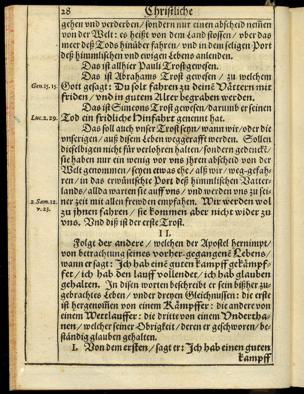 28 Christliche
gehen vnd verderben/ sondern nur einen abscheid nemen
von der Welt: es heißt von dem Land stossen/ vber das
meer deß Tods hinüber fahren/ vnd in dem seligen Port
deß himmlischen vnd ewigen Lebens anlenden.
Das ist allhier Pauli Trost gewesen.
Das ist Abrahams Trost gewesen/ zu welchem
Gen. 15. 15. Gott gesagt: Du solt fahren zu deine Vättern mit
friden/ vnd in gutem Alter begraben werden.
Das ist Simeons Trost gewesen/ darumb er seinen
Luc. 2. 29. Tod ein fridliche Hinfahrt genennt hat.
Das soll auch vnser Trost seyn/ wann wir/ oder die
vnserigen/ auß disem Leben weggerafft werden. Sollen
dieselbigen nicht für verlohren halten/ sondern gedencken/
sie haben nur ein wenig vor vns ihren abscheid von der
Welt genommen/ seyen etwas ehe/ alß wir/ weg-gefah-
ren/ in das erwünschte Port deß himmlischen Vatter-
lands/ allda warten sie auff vns/ vnd werden vns zu sei-
2. Sam. 12. ner zeit mit allen freuden empfahen. Wir werden wol
v. 23. zu ihnen fahren/ sie kommen aber nicht wider zu
vns. Vnd diß ist der erste Trost.
II.
Folgt der andere/ welchen der Apostel hernimpt/
von betrachtung seines vorher-gegangenẽ Lebens/
wann er sagt: Ich hab eine gutẽ kampf gekämpf-
fet/ ich hab den lauff vollendet/ ich hab glauben
gehalten. In disen worten beschreibt er sein bißher zu-
gebrachtes Leben/ vnder dreyen Gleichnussen: die erste
ist hergenommen von einem Kämpffer: die andere von
einem Wettlauffer: die dritte von einem Vndertha-
nen/ welcher seiner Obrigkeit/ deren er geschworen/ be-
ständig glauben gehalten.
I. Von dem ersten/ sagt er: Ich hab einen guten
kampff